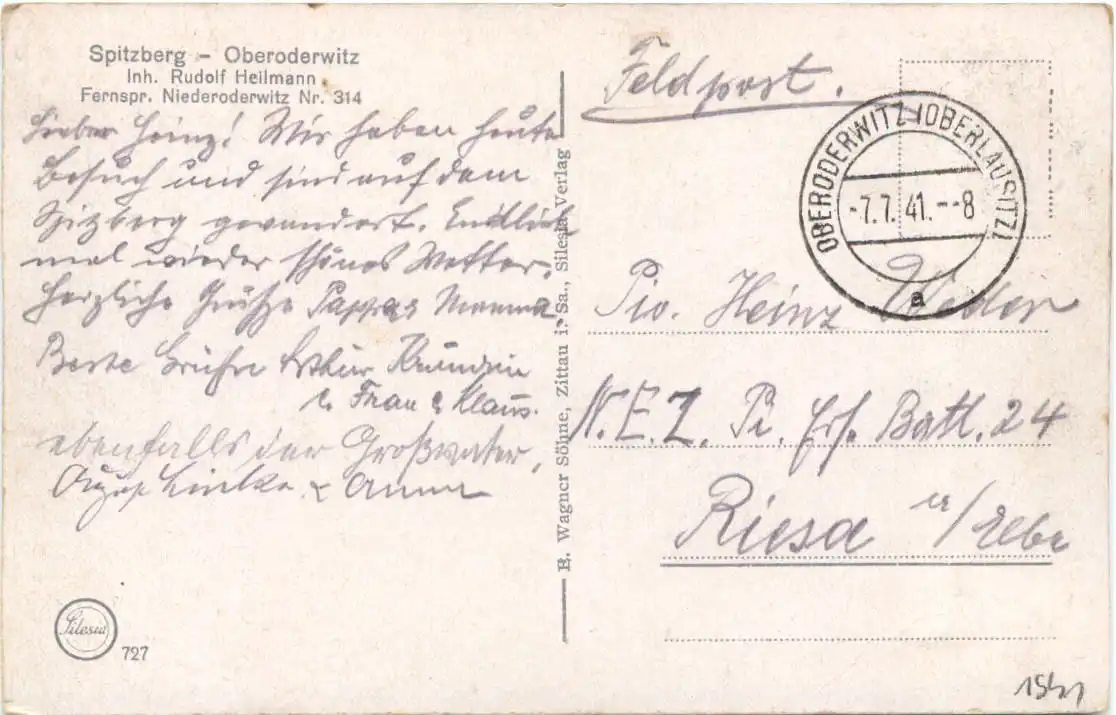 Spitzberg – Oberoderwitz
Inh. Rudolf Heilmann
Fernspr. Niederoderwitz Nr. 314
Lieber Heinz! Wir haben heute
Besuch und sind auf dem
Spizberg gewandert. Endlich
mal wieder schönes Wetter.
Herzliche Grüße Pappa & Mamma.
Beste Grüße Arthur
& Frau & Klaus.
ebenfalls der Großvater,
Linke & Anna
Silesia
727
E. Wagner Söhne, Zittau i. Sa., Silesia-Verlag
Feldpost.
OBERODERWITZ (OBERLAUSITZ)
-7.7.41.--8
a
Pio. Heinz
N.E.Z. Pi. Ers. Batl. 24
Riesa a/Elbe
1541